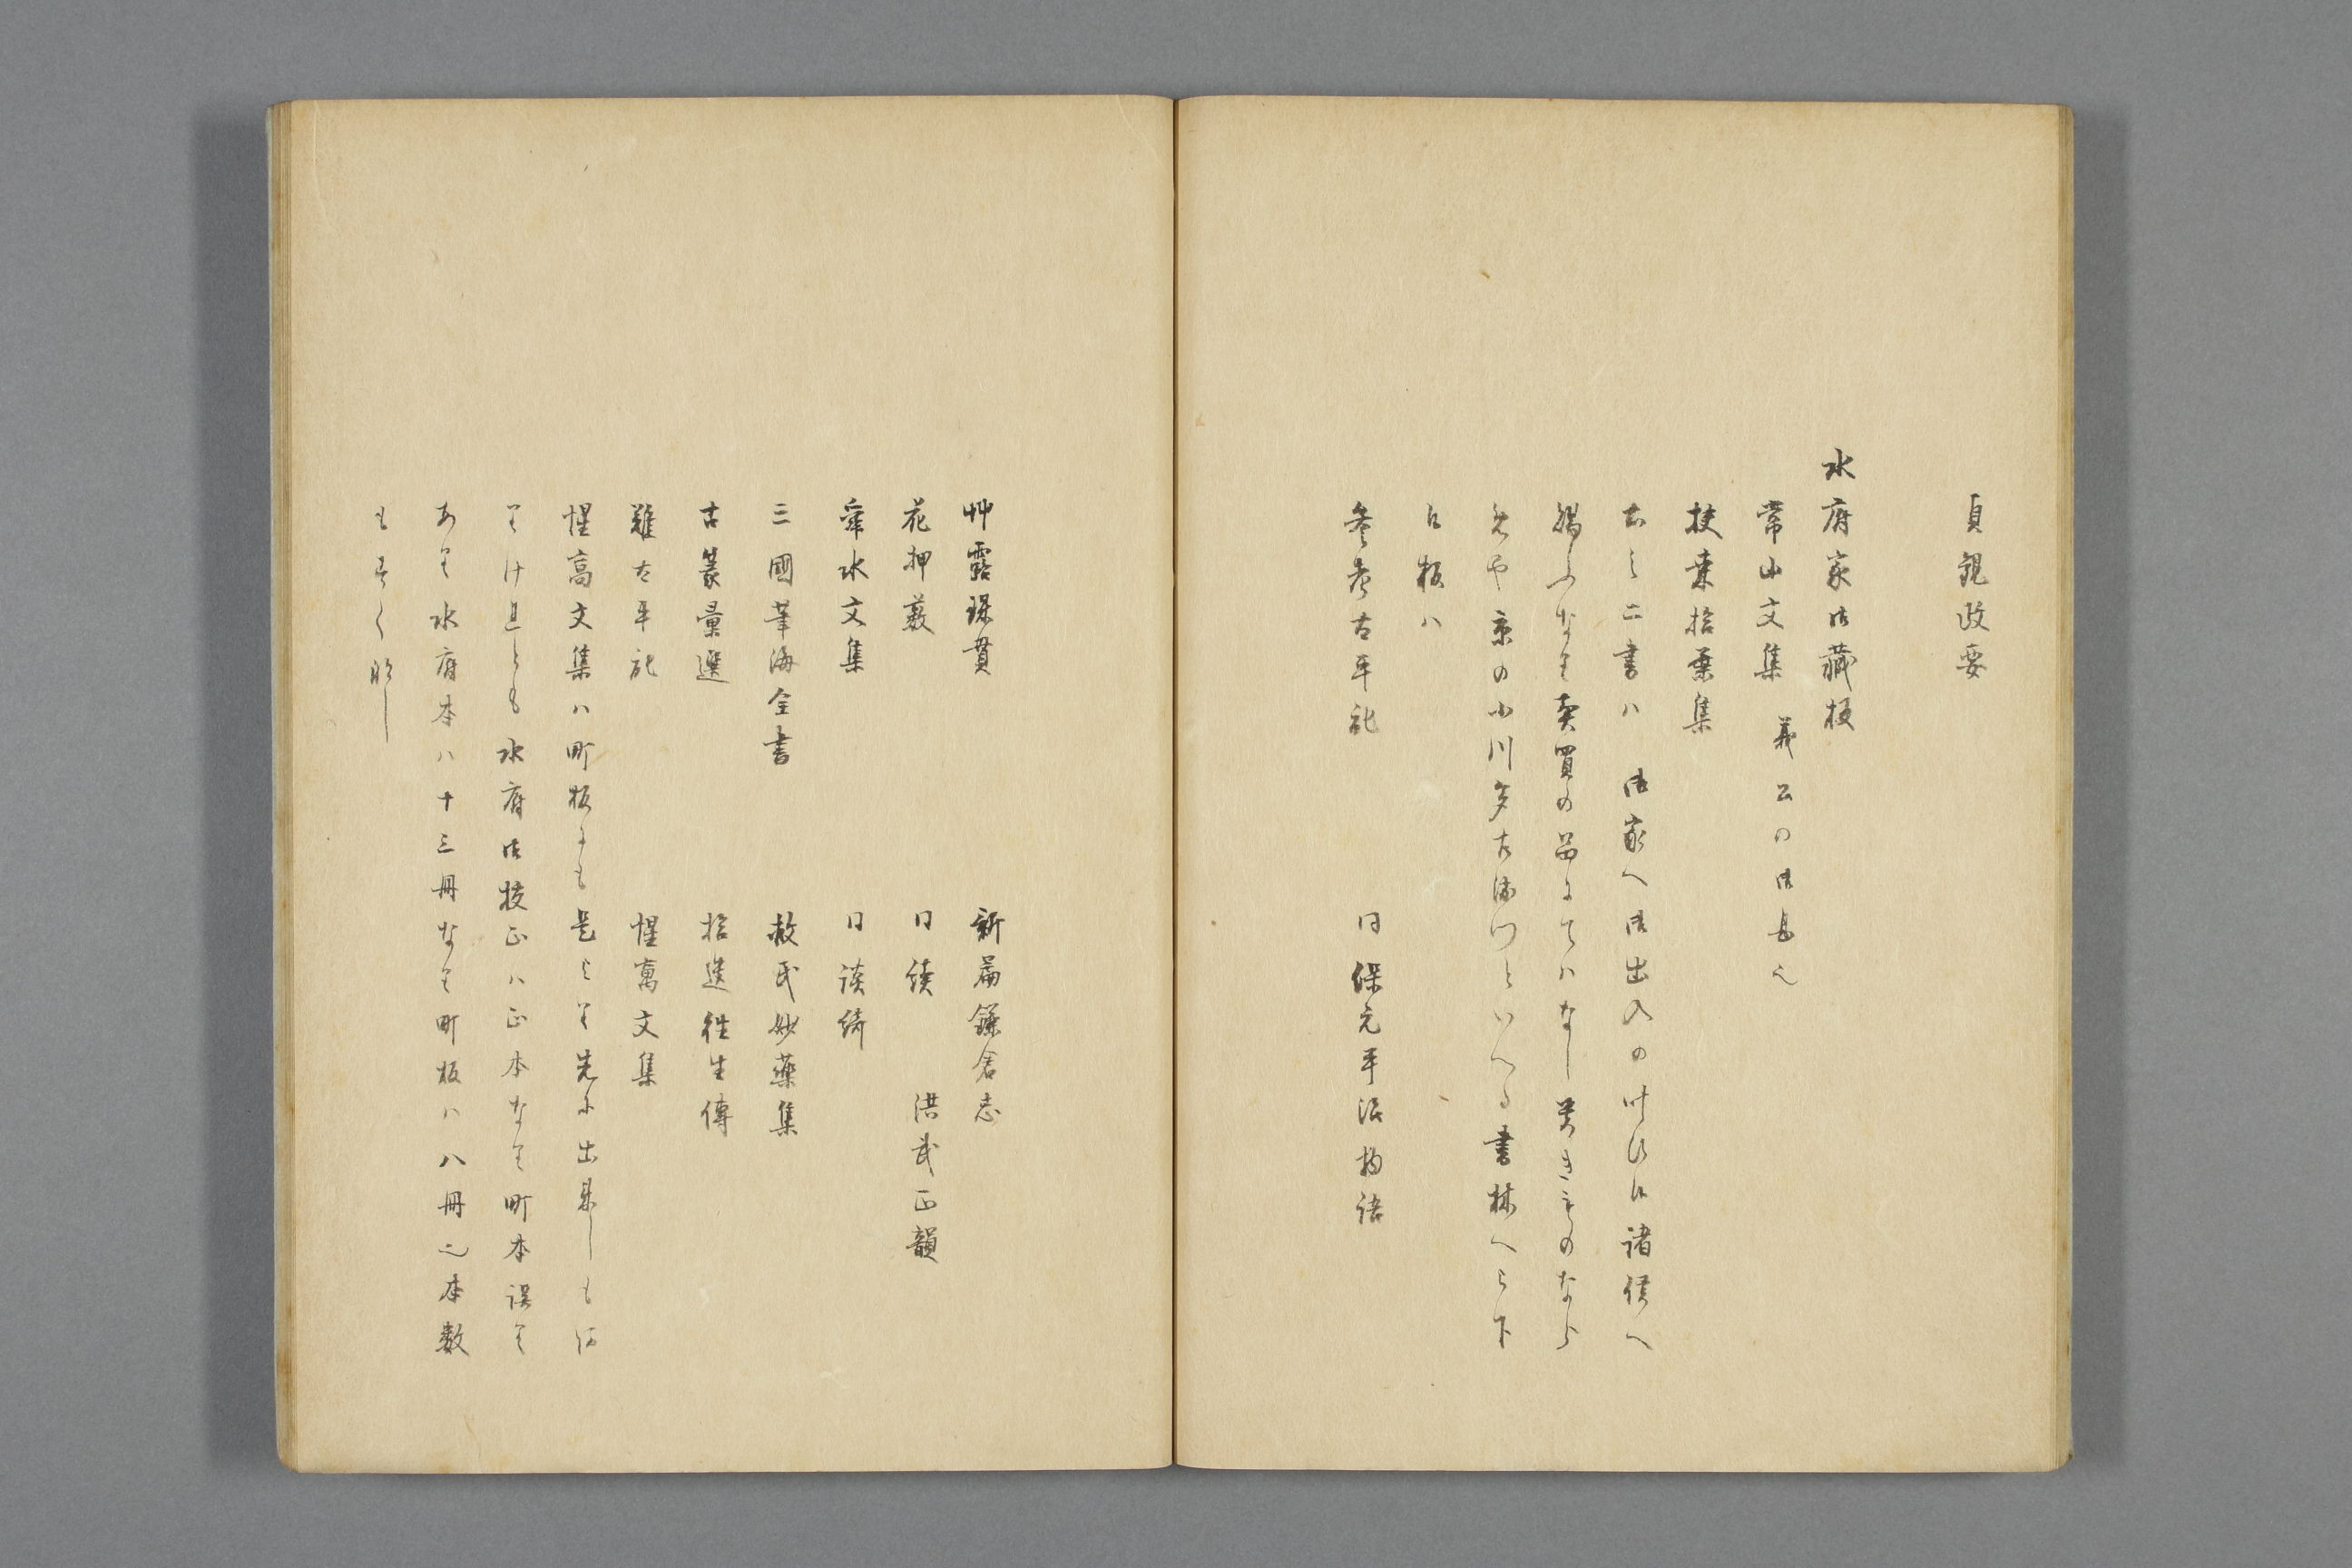 貞観政要
水府家御蔵板
常山文集 義公の御集也
扶桑拾葉集
右之二書ハ 御家へ御出入の 諸侯へ
賜ふなり売買の品にてハなし 若きものなら
んや京の小川多左衛門といへる書林へ被下
候板ハ
参考太平記 同保元平治物語
艸露貫珠 新編鎌倉志
花押薮 同続 洪武正韻
舜水文集 同談綺
三國筆海全書 救民妙薬集
古篆彙選 拾遺往生傳
難太平記 惺窩文集
惺窩文集ハ町板にも是あり先に出来しも
のなりけれとも水府御校正ハ正本なり町本誤り
あり水府本ハ十三冊なり町板ハ八冊也本数
もすくなし